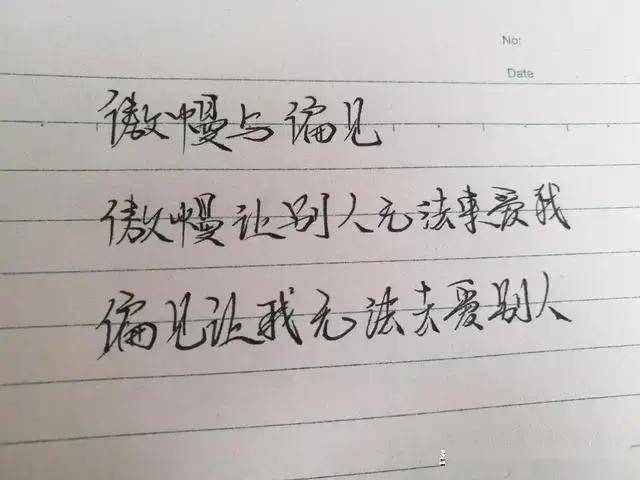 No:
Date
傲慢与偏见
傲慢让别人无法来爱我
偏见让我无法去爱别人